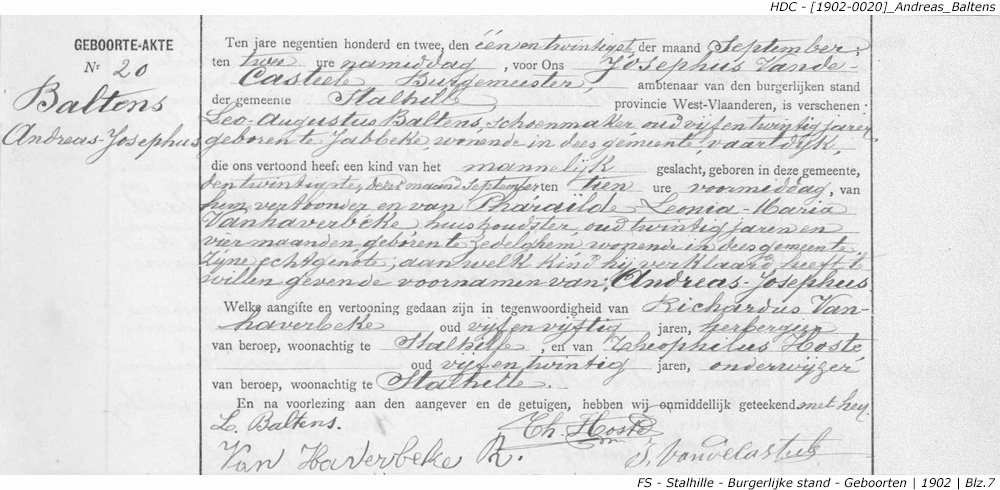 HDC - [1902-0020]_Andreas_Baltens
GEBOORTE-AKTE
Nr 20
Baltens
Andreas-Josephus
Ten jare negentien honderd en twee, den één en twintigst, der maand September;
ten twee ure namiddag, voor Ons Josephus Vande-
Casteele Burgemeester, ambtenaar van den burgerlijken stand
der gemeente Stalhille provincie West-Vlaanderen, is verschenen:
Leo-Augustus Baltens, schoenmaker oud vijf en twintig jaren,
geboren te Jabbeke, wonende in dees gemeente, vaartdijk,
die ons vertoond heeft een kind van het mannelijk geslacht, geboren in deze gemeente,
den twintigste, dezer maand September ten tien ure voormiddag, van
hem vertoonder en van Pharaïlde Leonia-Maria
Vanhaverbeke, huishoudster, oud twintig jaren en
vier maanden geboren te Zedelghem wonende in dees gemeente
zijne echtgenote; aan welk kind hij verklaard heeft te
willen geven de voornamen van: Andreas-Josephus
Welke aangifte en vertooning gedaan zijn in tegenwoordigheid van Richardus Van-
haverbeke oud vijf en vijftig jaren, herbergier
van beroep, woonachtig te Stalhille, en van Theophilus Hoste
oud vijf en twintig jaren, onderwijzer
van beroep, woonachtig te Stalhille.
En na voorlezing aan den aangever en de getuigen, hebben wij onmiddellijk geteekend met hen.
L. Baltens. Th. Hoste
Van Haverbeke R. J. Vandecasteele
FS - Stalhille - Burgerlijke stand - Geboorten | 1902 | Blz.7